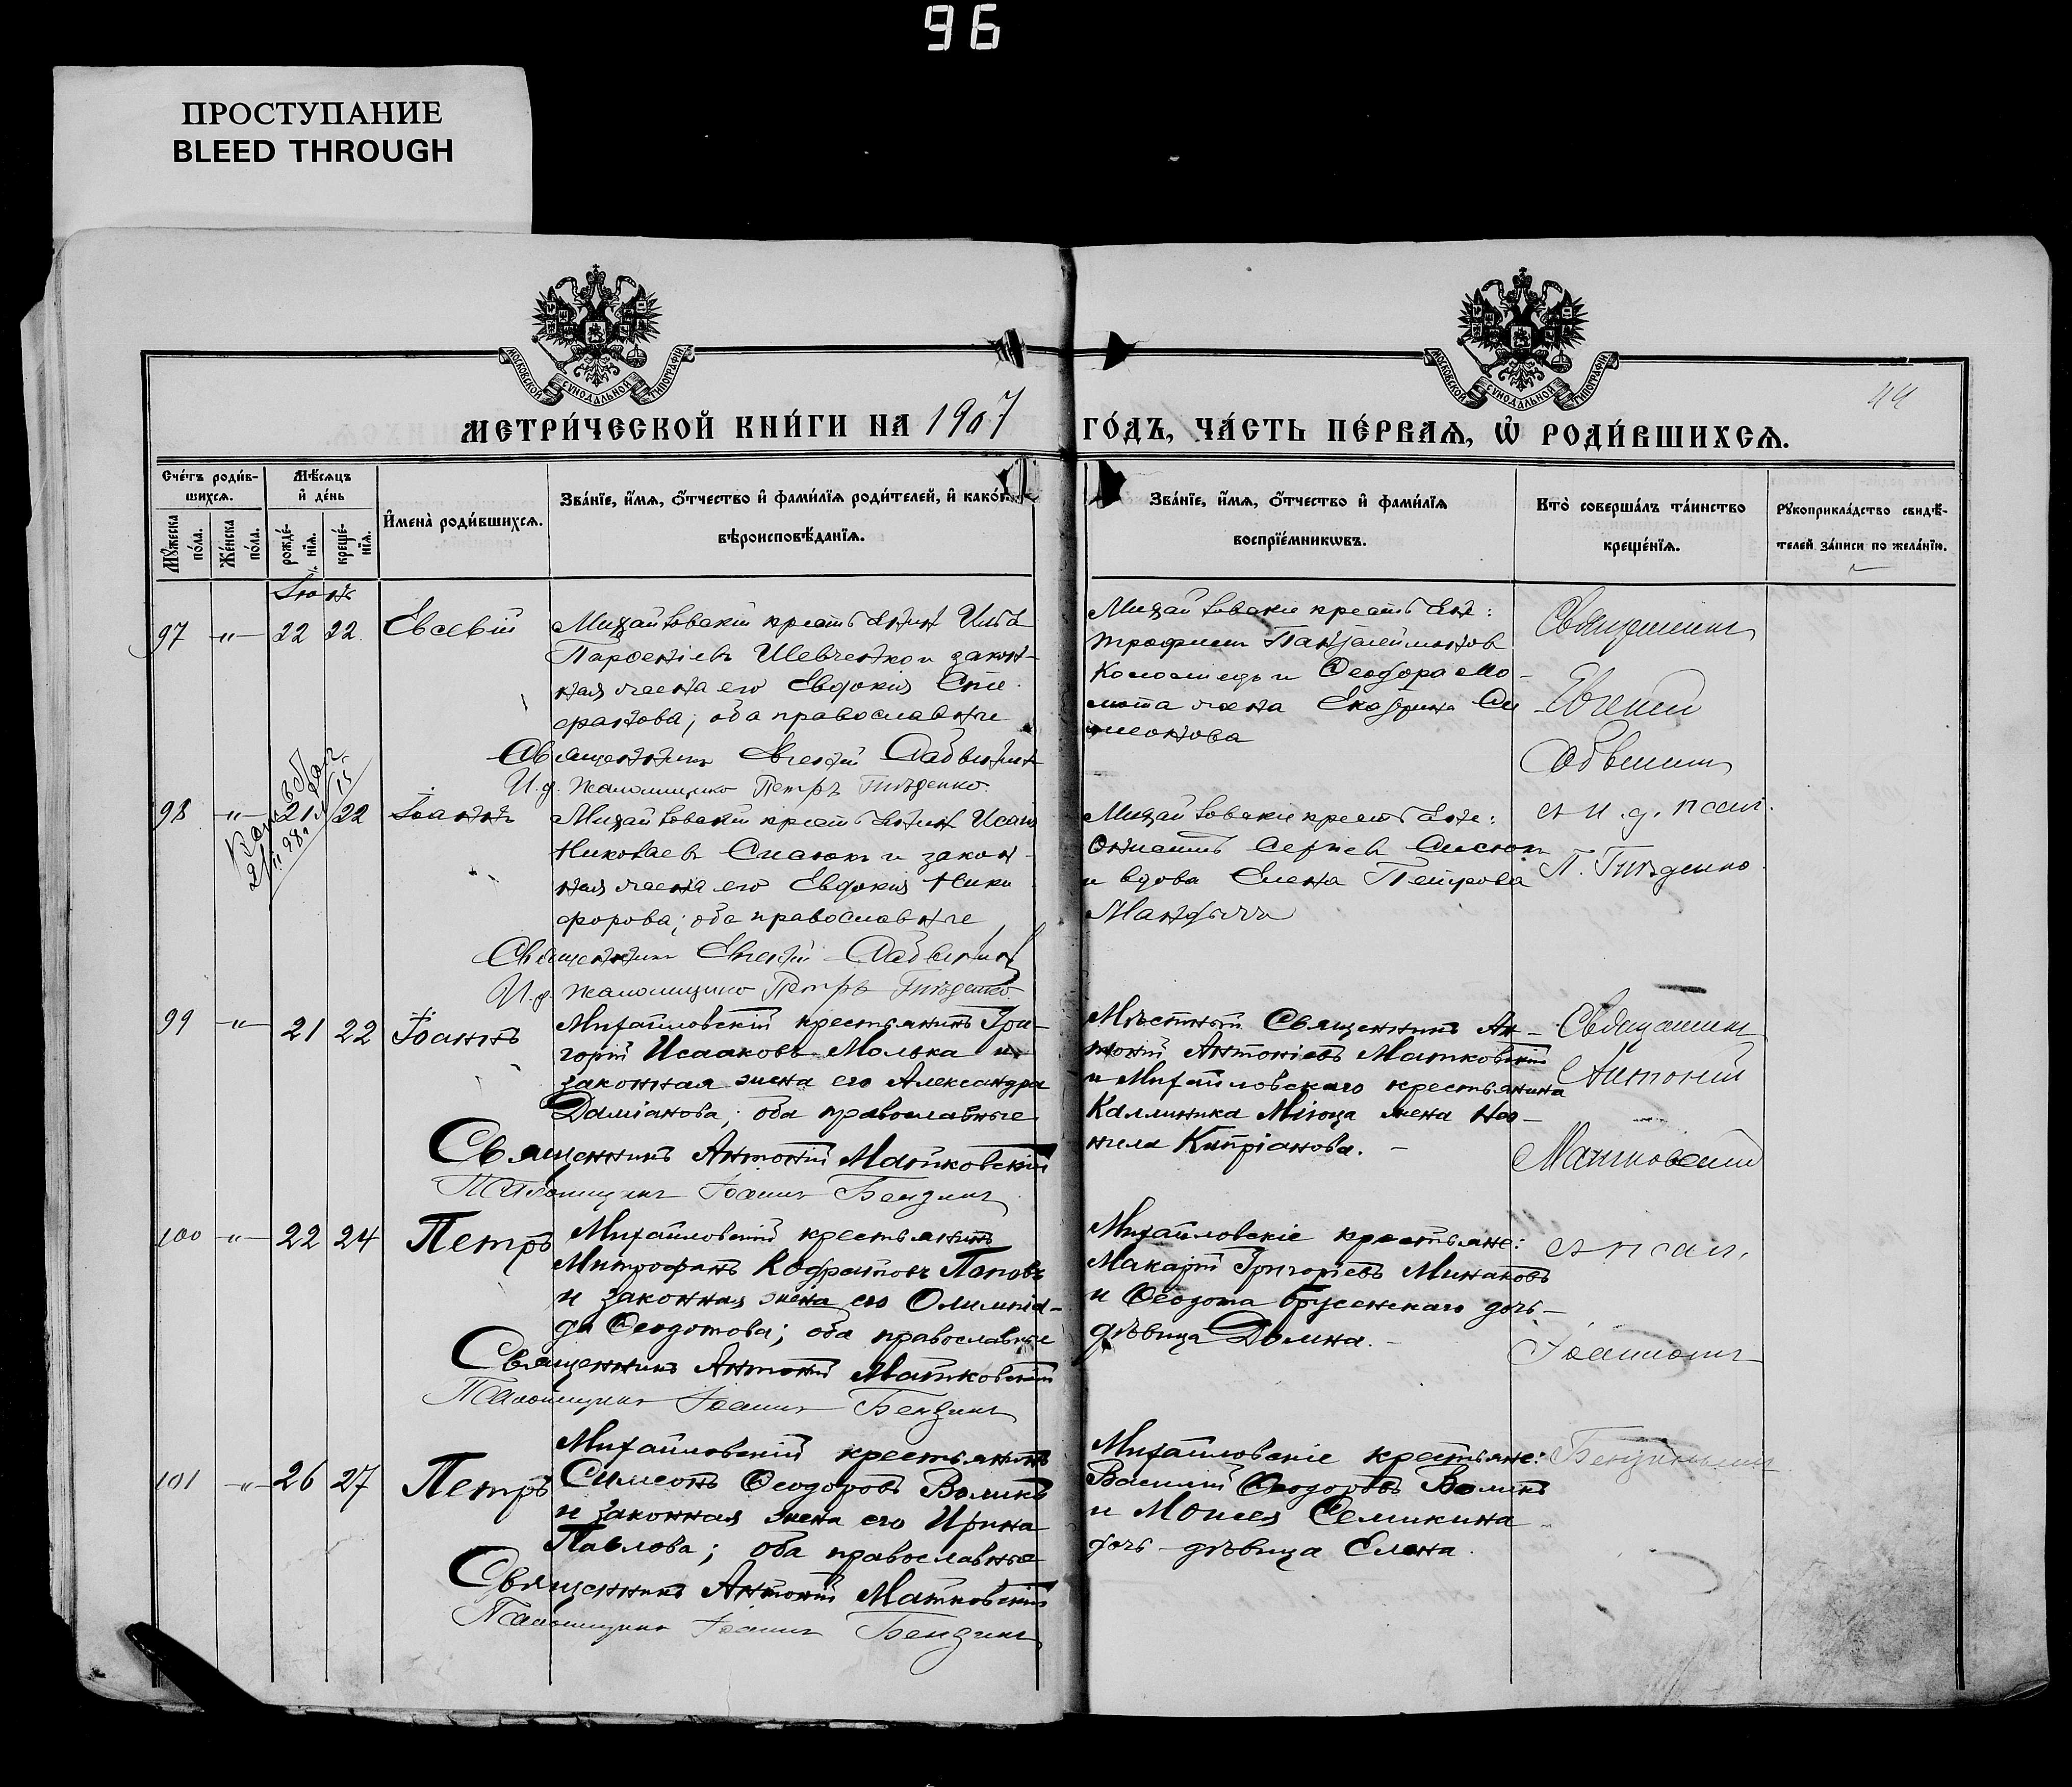 96
ПРОСТУПАНИЕ
BLEED THROUGH
МОСКОВСКОЙ СУНОДАЛЬНОЙ ТИПОГРАФІИ
МОСКОВСКОЙ СУНОДАЛЬНОЙ ТИПОГРАФІИ
44
МЕТРИ́ЧЕСКОЙ КНИ́ГИ НА 1907 ГО́ДЪ, ЧА́СТЬ ПЕ́РВАѦ, Ѽ РОДИ́ВШИХСѦ.
Сче́тъ роди́в-
шихсѧ.
Мѣ́сѧцъ
и҆ де́нь
Мꙋ́жеска по́ла.
Же́нска по́ла.
рожде́-
нїѧ.
креще́-
нїѧ.
И҆мена̀ роди́вшихсѧ.
Зва́нїе, и҆́мѧ, ѻ҆́тчество и҆ фами́лїѧ роди́телей, и҆ како́гѡ
вѣроисповѣ́данїѧ.
Зва́нїе, и҆́мѧ, ѻ҆́тчество и҆ фами́лїѧ
воспрїе́мникѡвъ.
Кто̀ соверша́лъ та́инство
креще́нїѧ.
Рꙋкоприкла́дство свидѣ́-
телей за́писи по жела́нїю.
Іюнь
97 -"- 22 22 Евсевій
Михайловскій крестьянин Илья
Парѳеніевъ Шевченко и закон-
ная жена его Евдокія Спи-
ова; оба православные
Священникъ Евгеній
И.д. псаломщика Петръ Гнѣденко
Михайловскіе крестьяне:
Трофим Пантелеймонов
Коломіецъ и Ѳеодора Мо-
жена Екатерина Си-
меонова
Священникъ
Евгеній
и И. д. псал.
П. Гнѣденко
98 -"- 21 22 Іоаннъ
Михайловскій крестьянин Исаия
Николаевъ и закон-
ная жена его Евдокія Ники-
форова; оба православные
Священникъ Евгеній
И.д. псаломщика Петръ Гнѣденко
Михайловскіе крестьяне:
Сергіев
и вдова Елена Петрова
99 -"- 21 22 Іоаннъ
Михайловскій крестьянинъ Гри-
горій Исааковъ Молька и
законная жена его Александра
Даміанова; оба православные
Священникъ Антоній Матковскій
Псаломщикъ Іоаннъ Бендикъ
Мѣстный Священникъ Ан-
тоній Антоніевъ Матковскій
и Михайловскаго крестьянина
Каллиника жена Нео-
нила Кипріанова. -
Священникъ
Антоній
Матковскій
100 -"- 22 24 Петръ
Михайловскій крестьянинъ
Митрофанъ Кодратовъ Поповъ
и законная жена его Олимпіа-
да Ѳеодотова; оба православные
Священникъ Антоній Матковскій
Псаломщикъ Іоаннъ Бендикъ
Михайловскіе крестьяне:
Макарій Григоріевъ Минаковъ
и Ѳеодота Брусенскаго дочь-
дѣвица Домна. -
и псал.
Іоанномъ
101 -"- 26 27 Петръ
Михайловскій крестьянинъ
Симеонъ Ѳеодоровъ Воликъ
и законная жена его Ирина
Павлова; оба православные
Священникъ Антоній Матковскій
Псаломщикъ Іоаннъ Бендикъ
Михайловскіе крестьяне:
Василій Ѳеодоровъ Воликъ
и Моисея Семикина
дочь - дѣвица Елена.